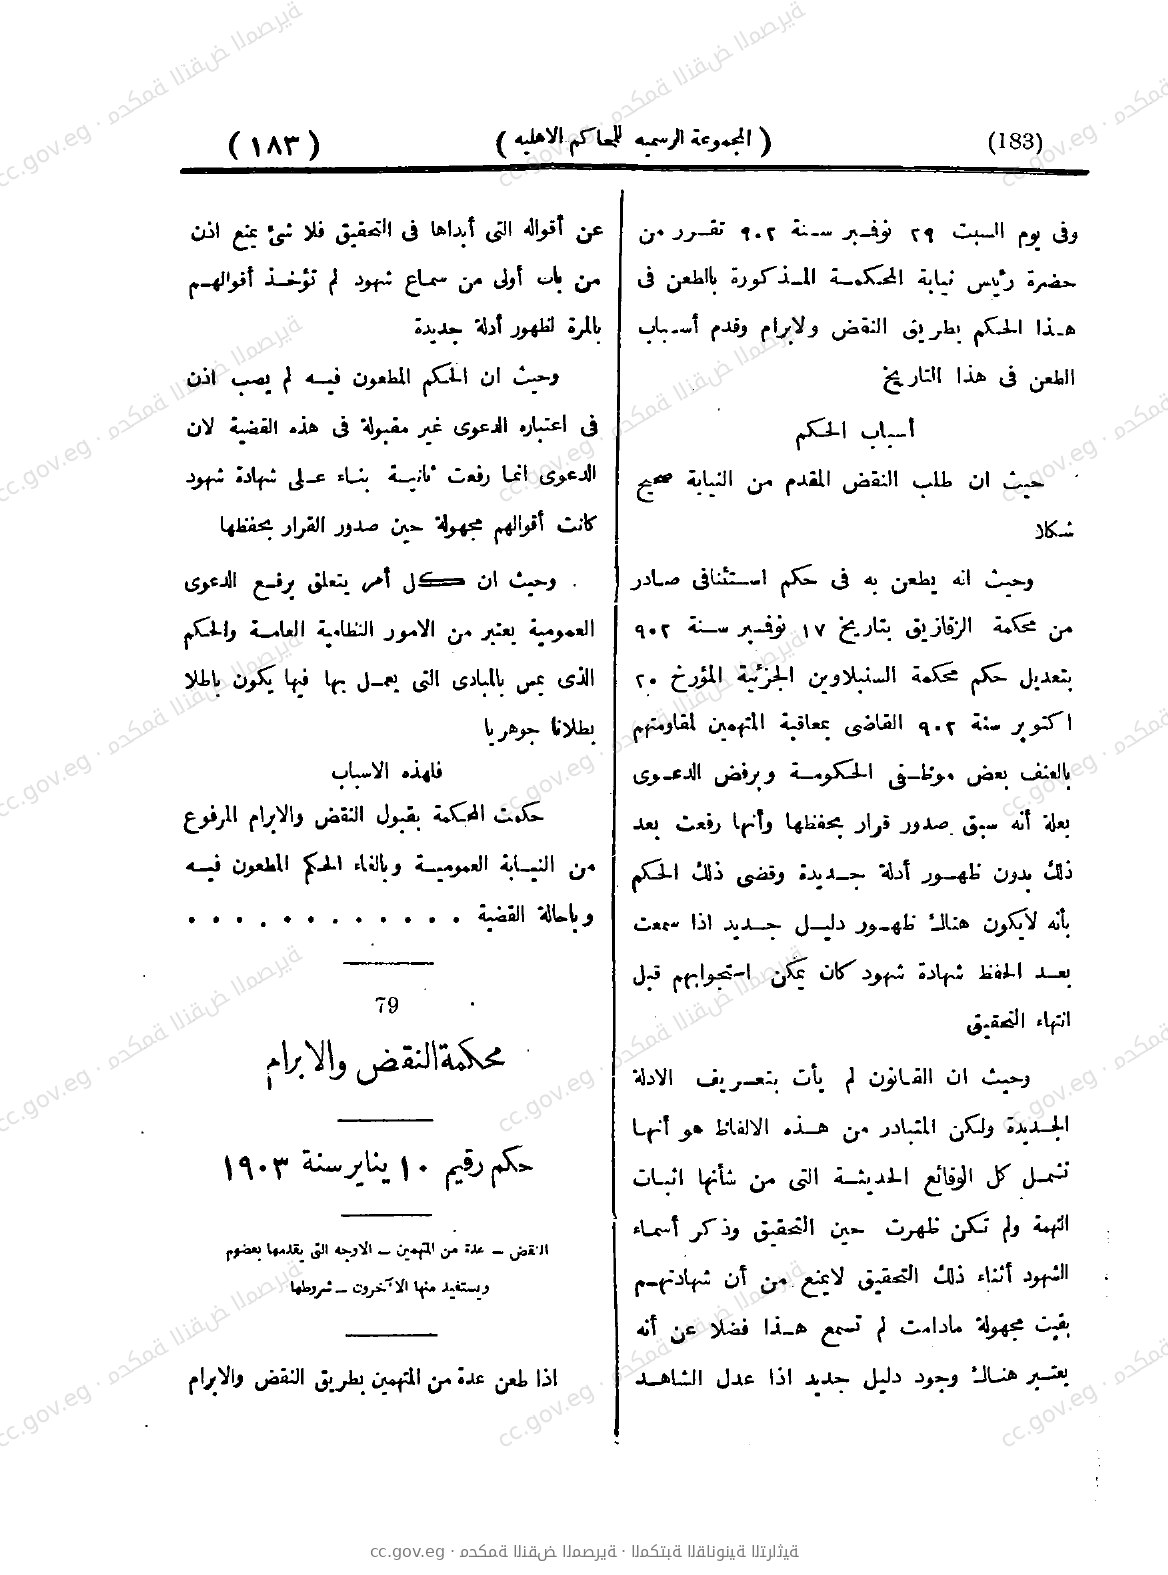 (183)
(المجموعة الرسميه للمحاكم الاهليه)
(١٨٣)
وفى يوم السبت ٢٩ نوفمبر سنة ٩٠٢ تقرر من
حضرة رئيس نيابة المحكمة المذكورة بالطعن فى
هذا الحكم بطريق النقض ولابرام وقدم أسباب
الطعن فى هذا التاريخ
أسباب الحكم
حيث ان طلب النقض المقدم من النيابة صحيح
شكلا
وحيث انه يطعن به فى حكم استئنافى صادر
من محكمة الزقازيق بتاريخ ١٧ نوفمبر سنة ٩٠٢
بتعديل حكم محكمة السنبلاوين الجزئية المؤرخ ٢٠
اكتوبر سنة ٩٠٢ القاضى بمعاقبة المتهمين لمقاومتهم
بالعنف بعض موظفى الحكومة وبرفض الدعوى
بعلة أنه سبق صدور قرار بحفظها وأنها رفعت بعد
ذلك بدون ظهور أدلة جديدة وقضى ذلك الحكم
بأنه لايكون هناك ظهور دليل جديد اذا سمعت
بعد الحفظ شهادة شهود كان يمكن استجوابهم قبل
انتهاء التحقيق
وحيث ان القانون لم يأت بتعريف الادلة
الجديدة ولكن المتبادر من هذه الالفاظ هو أنها
تشمل كل الوقائع الحديثة التى من شأنها اثبات
التهمة ولم تكن ظهرت حين التحقيق وذكر أسماء
الشهود أثناء ذلك التحقيق لايمنع من أن شهادتهم
بقيت مجهولة مادامت لم تسمع هذا فضلا عن أنه
يعتبر هناك وجود دليل جديد اذا عدل الشاهد
عن أقواله التى أبداها فى التحقيق فلا شئ يمنع اذن
من باب أولى من سماع شهود لم تؤخذ أقوالهم
بالمرة لظهور أدلة جديدة
وحيث ان الحكم المطعون فيه لم يصب اذن
فى اعتباره الدعوى غير مقبولة فى هذه القضية لان
الدعوى انما رفعت ثانية بناء على شهادة شهود
كانت أقوالهم مجهولة حين صدور القرار بحفظها
وحيث ان كل أمر يتعلق برفع الدعوى
العمومية يعتبر من الامور النظامية العامة والحكم
الذى يمس بالمبادى التى يعمل بها فيها يكون باطلا
بطلانا جوهريا
فلهذه الاسباب
حكمت المحكمة بقبول النقض والابرام المرفوع
من النيابة العمومية وبالغاء الحكم المطعون فيه
وباحالة القضية . . . . . . . . . . . .
79
محكمة النقض والابرام
حكم رقيم ١٠ يناير سنة ١٩٠٣
النقض – عدة من المتهمين – الاوجه التى يقدمها بعضهم
ويستفيد منها الآخرون – شروطها
اذا طعن عدة من المتهمين بطريق النقض والابرام
cc.gov.eg · محكمة النقض المصرية · المكتبة القانونية التراثية